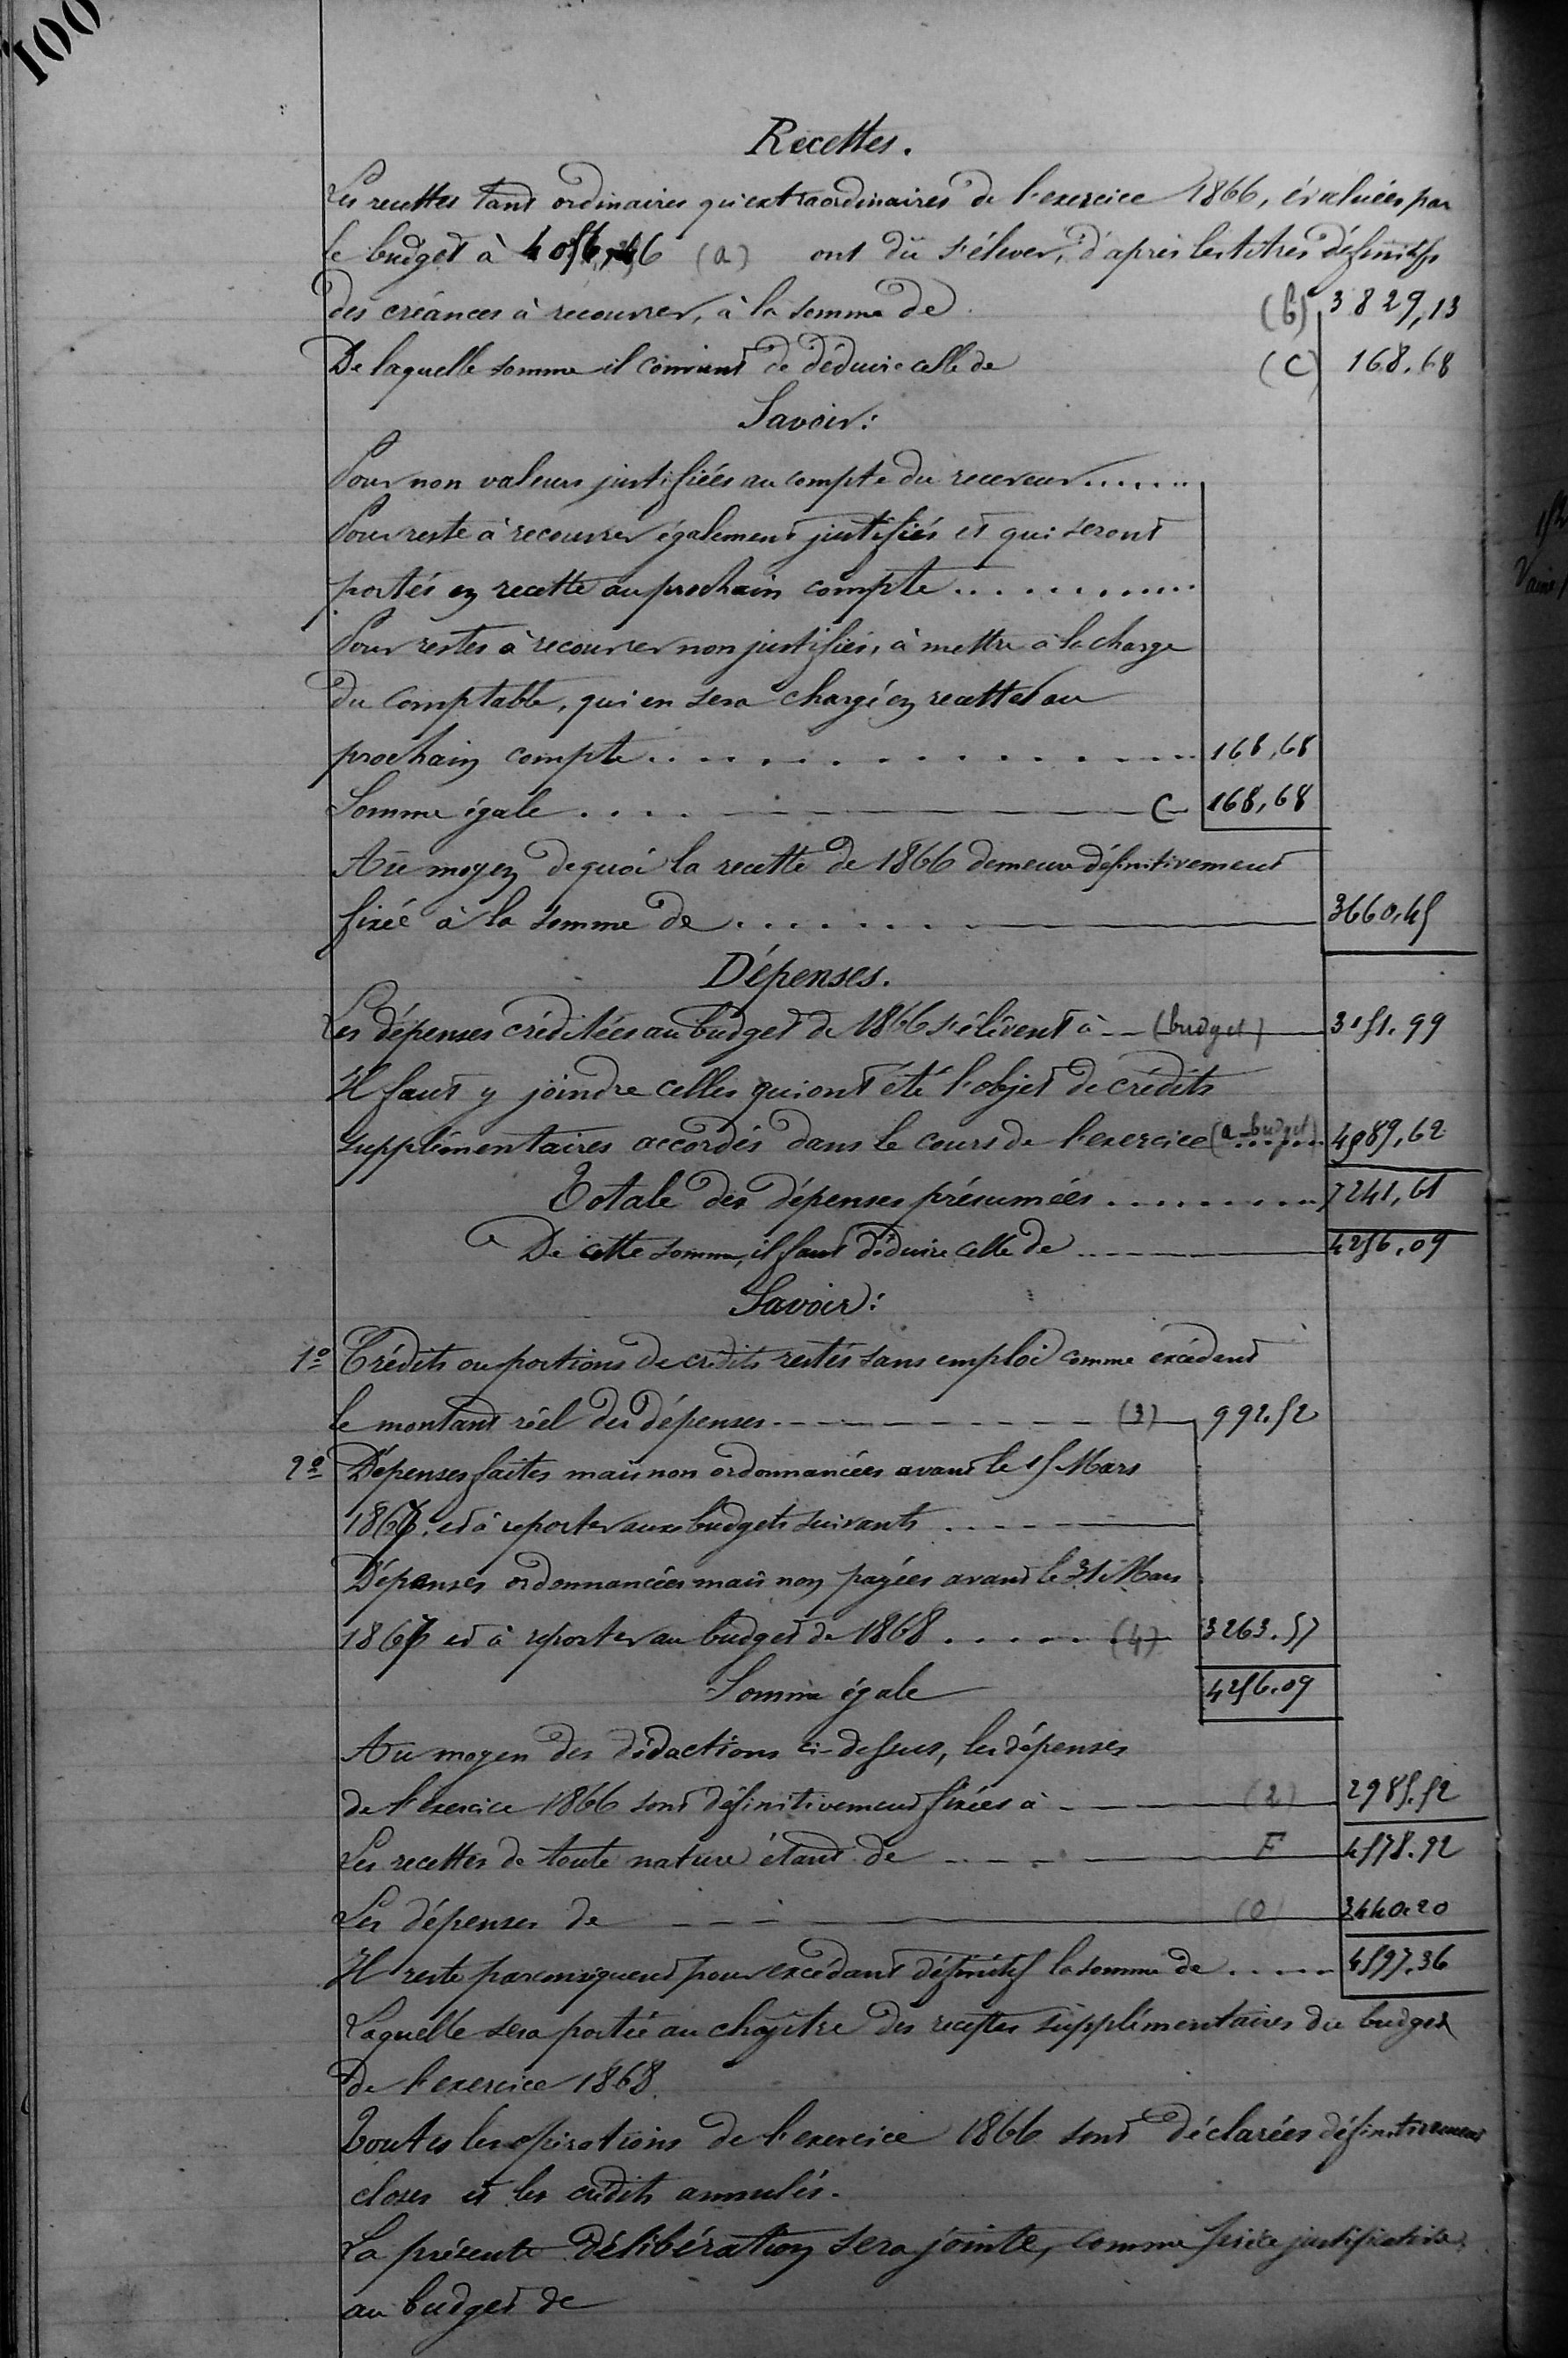 100
Recettes.
Les recettes tant ordinaires qu'extraordinaires de l'exercice 1866, évaluées par
le budget à 4056,46 (a) ont dû s'élever, d'après les titres définitifs
des créances à recouvrer, à la somme de (b) 3829,13
De laquelle somme il convient de déduire celle de (C) 168.68
Savoir:
Pour non valeurs justifiées au compte du receveur.......
Pour reste à recouvrer également justifiés et qui seront
portés en recette au prochain compte............
Pour restes à recouvrer non justifiés, à mettre à la charge
du comptable, qui en sera chargé en recettes au
prochain compte............ 168,68
Somme égale .... C 168,68
Au moyen de quoi la recette de 1866 demeure définitivement
fixée à la somme de ....... 3660,45
Dépenses.
Les dépenses créditées au budget de 1866 s'élèvent à -- (budget) 3151.99
Il faut y joindre celles qui ont été l'objet de crédits
supplémentaires accordés dans le cours de l'exercice (a budget) 4089,62
Totale des dépenses présumées ......... 7241,61
De cette somme, il faut déduire celle de 4256.09
Savoir:
1º Crédits ou portions de crédits restés sans emploi comme excédent
le montant réel des dépenses (3) 992.52
2º Dépenses faites mais non ordonnancées avant le 15 Mars
1867. et à reporter aux budgets suivants
Dépenses ordonnancées mais non payées avant le 31 Mars
1867 et à reporter au budget de 1868 ...... (4) 3263.57
Somme égale 4256.09
Au moyen des dédactions ci-dessus, les dépenses
de l'exercice 1866 sont définitivement fixées à (2) 2985.52
Les recettes de toute nature étant de F 4578.92
Les dépenses de (0) 3440.20
Il reste par conséquent pour excédant définitif la somme de ..... 4597.36
Laquelle sera portée au chapitre des recettes supplémentaires du budget
de l'exercice 1868.
Toutes les opérations de l'exercice 1866 sont déclarées définitivement
closes et les crédits annulés.
La présente délibération sera jointe, comme pièce justificative,
au budget de